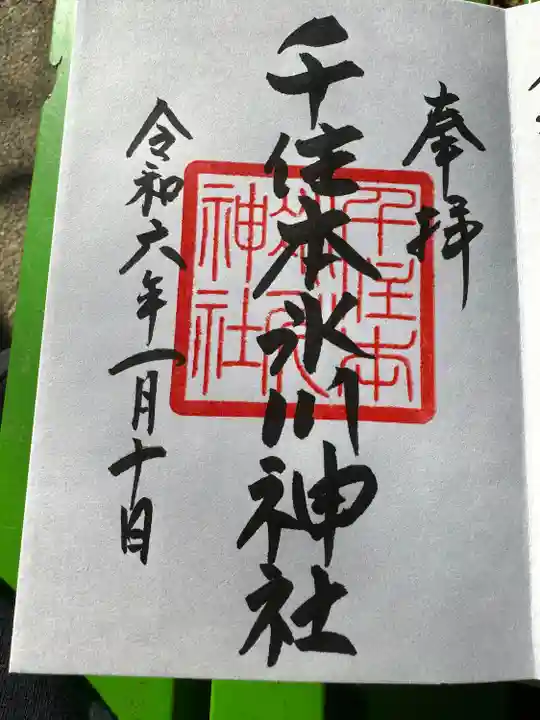 奉拝
千住本氷川神社
千住本
氷川
神社
令和六年一月十日